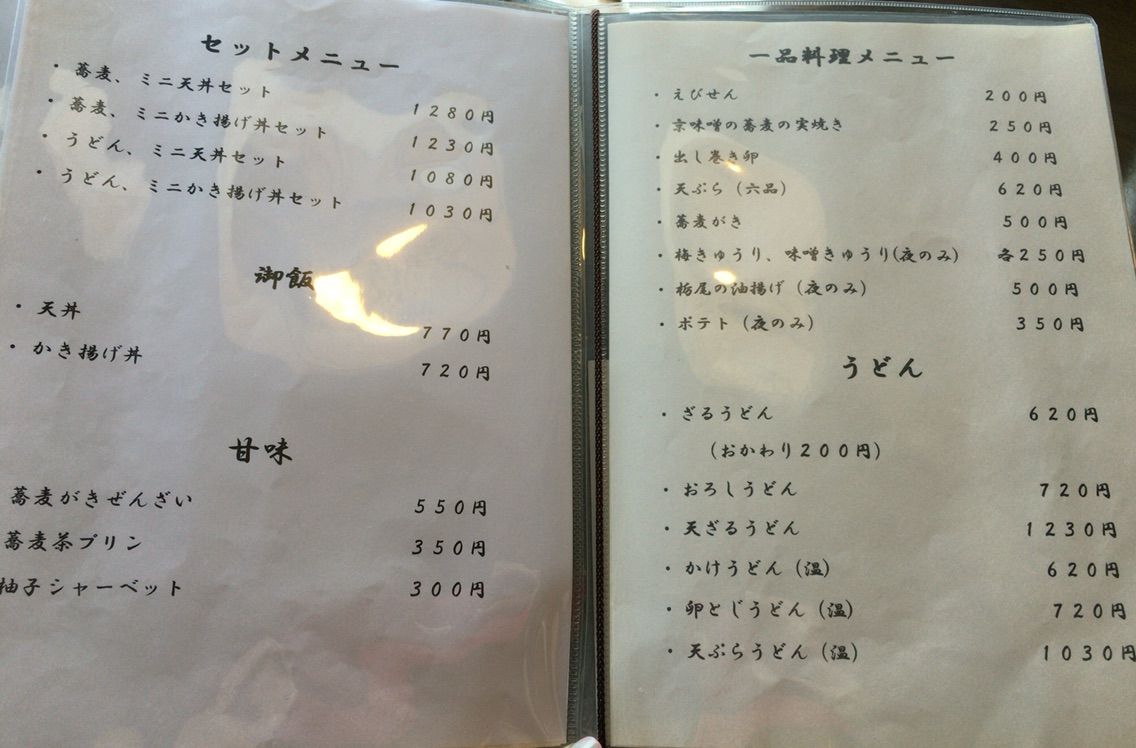 セットメニュー
・蕎麦、ミニ天丼セット 1280円
・蕎麦、ミニかき揚げ丼セット 1230円
・うどん、ミニ天丼セット 1080円
・うどん、ミニかき揚げ丼セット 1030円
御飯
・天丼 770円
・かき揚げ丼 720円
甘味
蕎麦がきぜんざい 550円
蕎麦茶プリン 350円
柚子シャーベット 300円
一品料理メニュー
・えびせん 200円
・京味噌の蕎麦の実焼き 250円
・出し巻き卵 400円
・天ぷら(六品) 620円
・蕎麦がき 500円
・梅きゅうり、味噌きゅうり(夜のみ) 各250円
・栃尾の油揚げ(夜のみ) 500円
・ポテト(夜のみ) 350円
うどん
・ざるうどん 620円
(おかわり200円)
・おろしうどん 720円
・天ざるうどん 1230円
・かけうどん(温) 620円
・卵とじうどん(温) 720円
・天ぷらうどん(温) 1030円